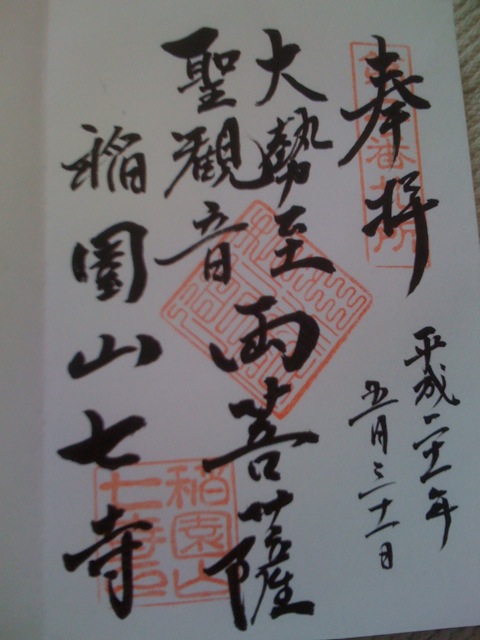 奉拝
平成二十一年
五月三十一日
大勢至
聖觀音
両菩薩
稲園山七寺
稲園山
七寺印